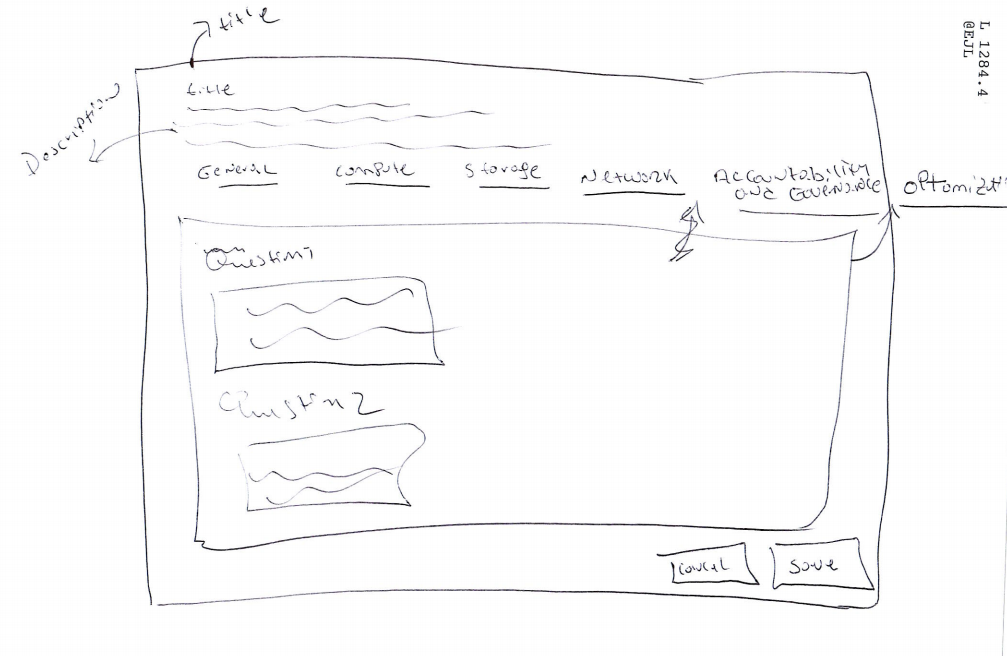 title
title
Description
General
compute
Storage
Network
Accountability
and Governance
optomizati
Question 1
Question 2
cancel
Save
L 1284.4
@EJL